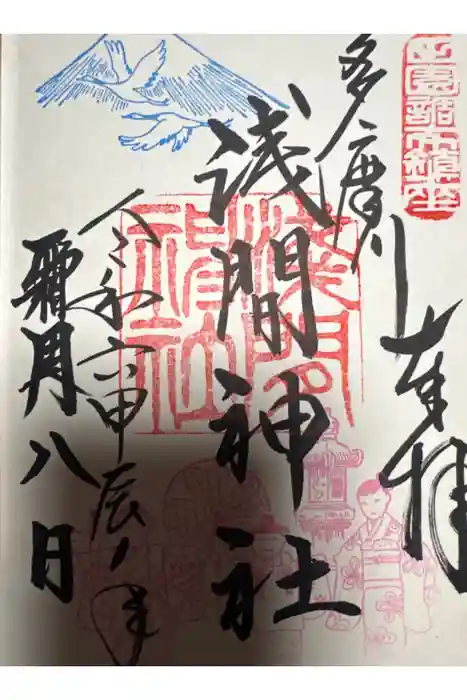 田園調布鎮座
奉拝
多摩川
浅間神社
浅間神社
令和六甲辰ノ年
霜月八日